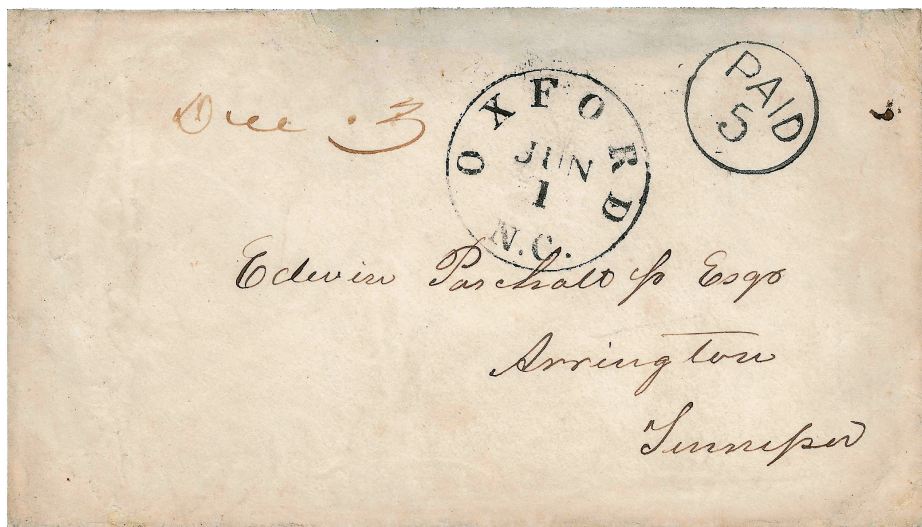 Due . 3
OXFORD
JUN
1
N.C.
PAID
5
Edwin Paschall Esqr
Arrington
Tennessee